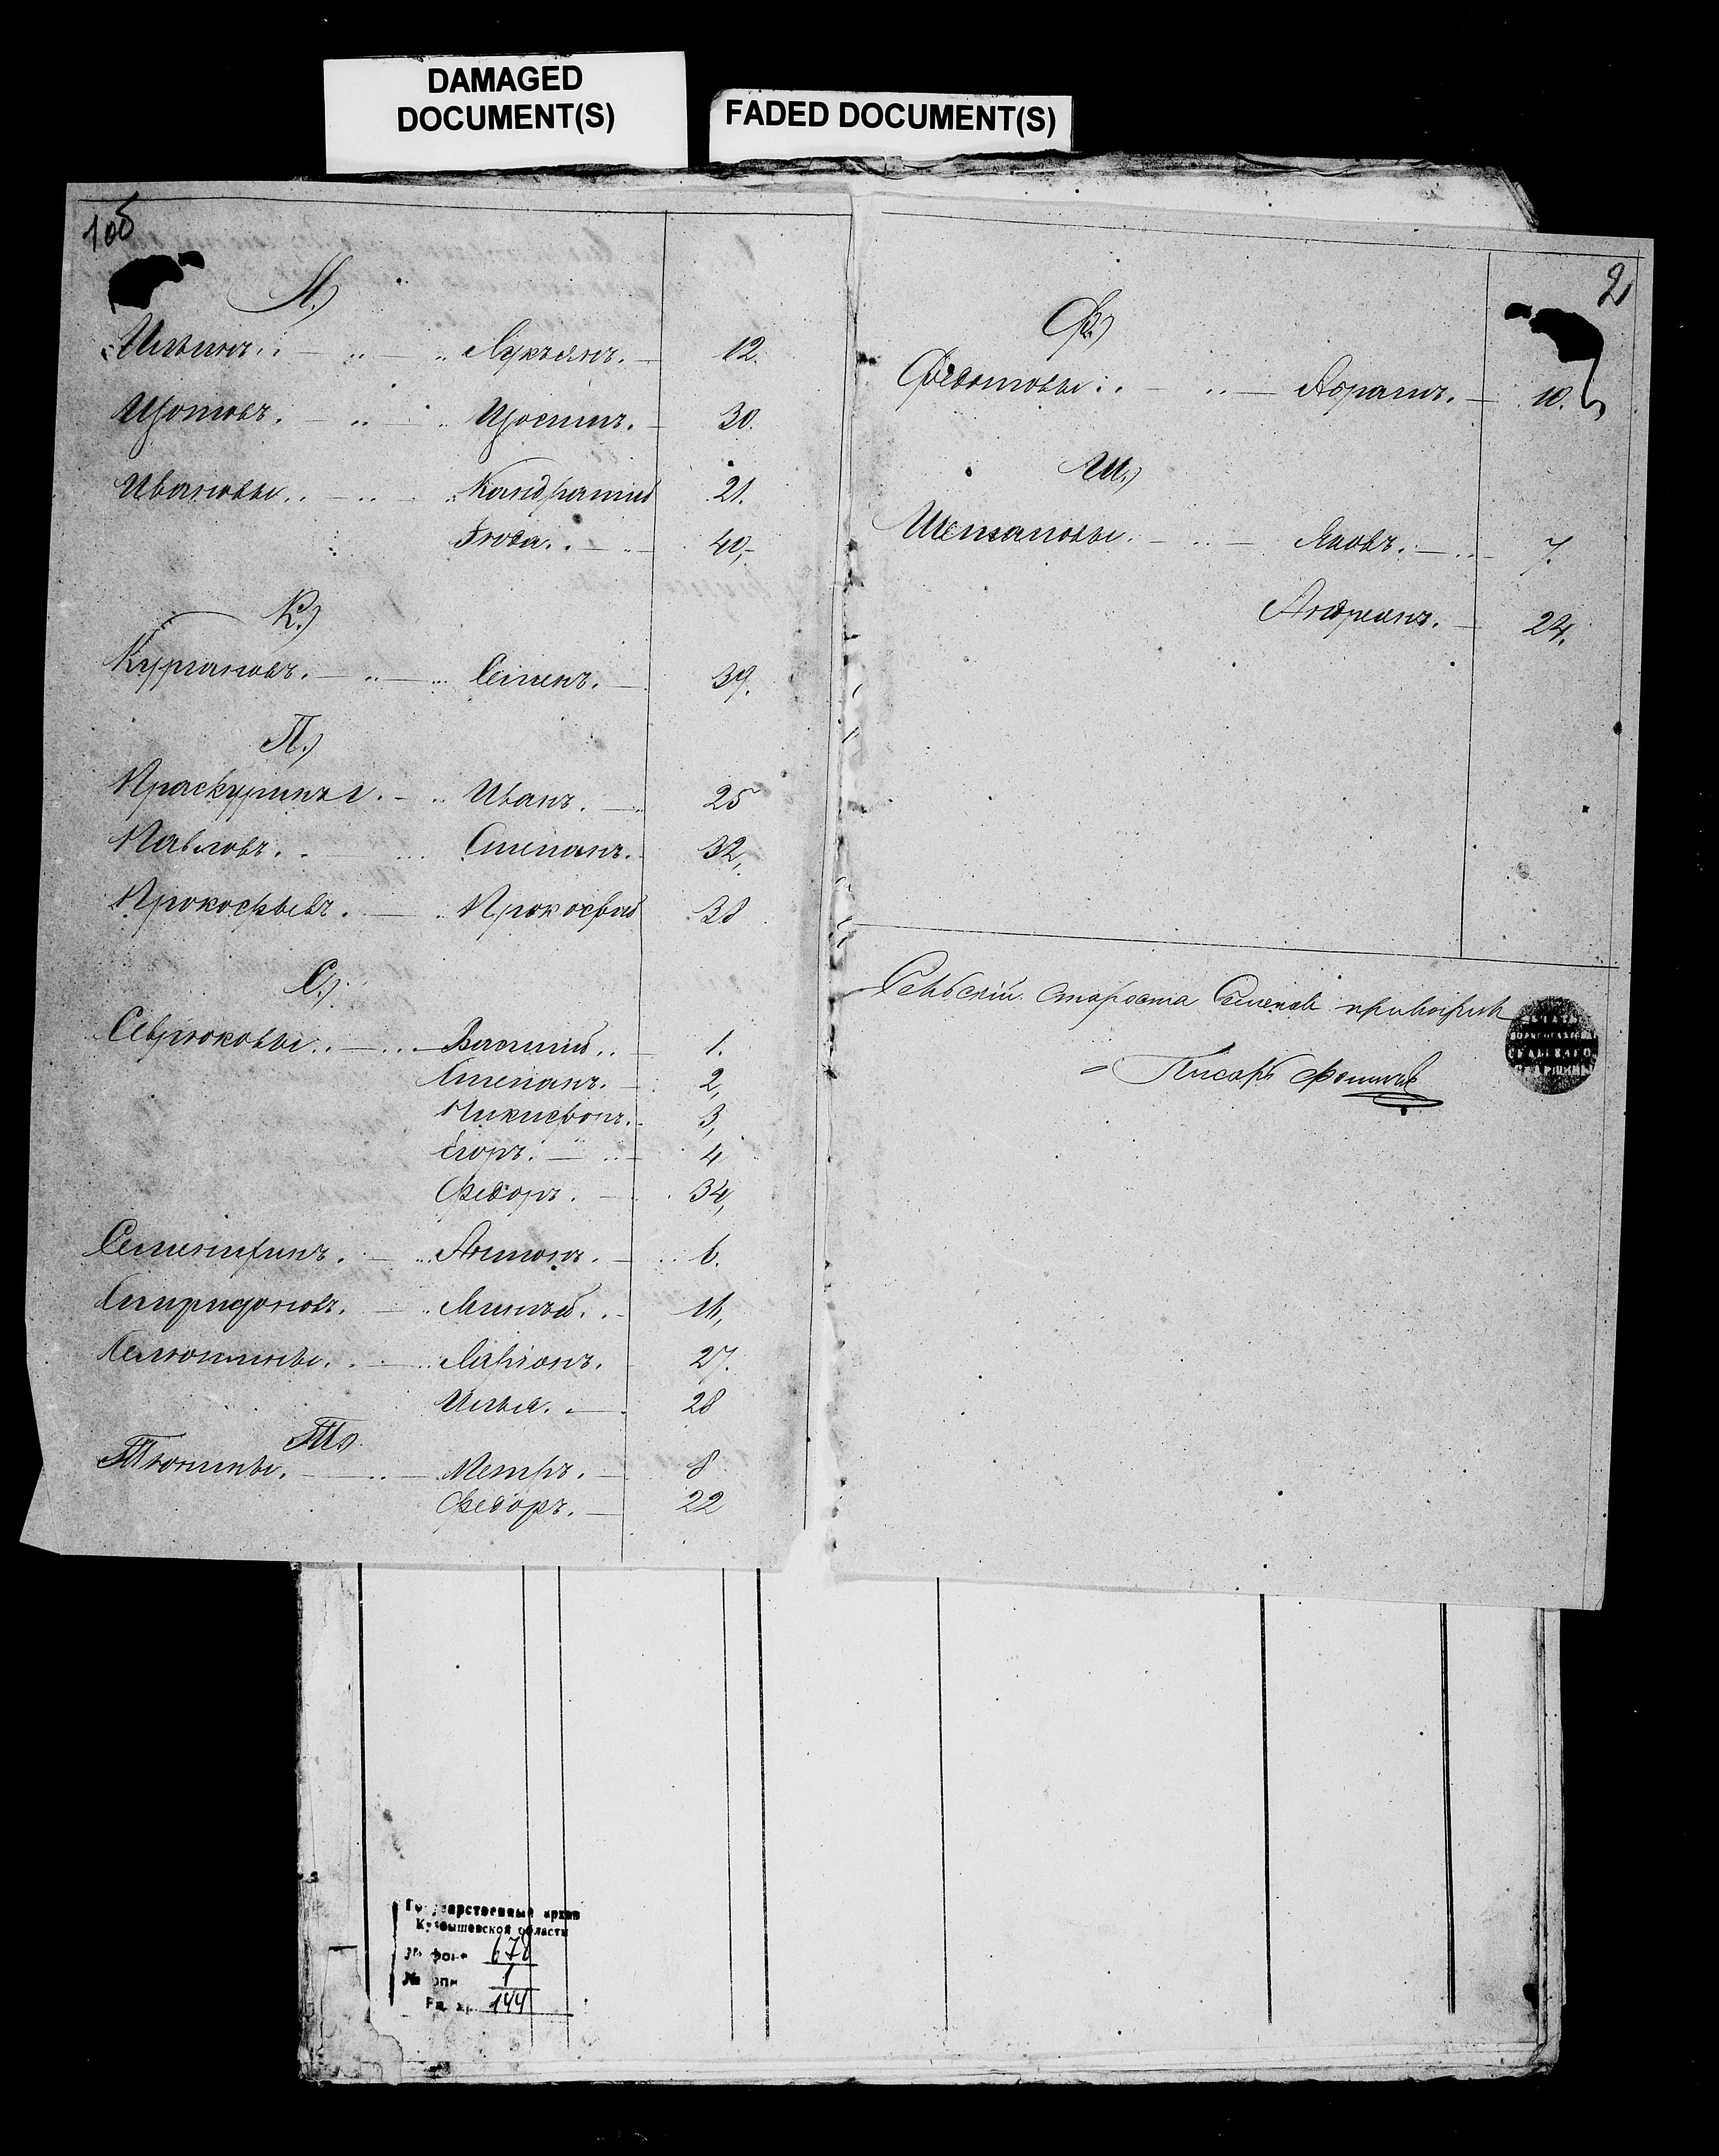 DAMAGED
DOCUMENT(S)
FADED DOCUMENT(S)
1об
И.)
Ильинъ. Лукъянъ. 12.
Изотовъ. Изосимъ. 30.
Ивановы. Кандратий 21.
Iюда. 40,
К.)
Кургановъ. Семенъ. 39.
П.)
Праскуринъ. Иванъ. 25
Павловъ. Степанъ. 32,
Прокофьевъ. Прокофий 38
С.)
Севрюковы. Василий. 1.
Степанъ. 2,
Никифоръ. 3,
Егоръ. 4
Федоръ. 34,
Антонъ. 6.
Спиридоновъ. 11,
Селюнины. Ларионъ. 27.
Илья. 28
Т.)
Тюнины. Петръ. 8
Федоръ. 22
2
Ф.)
Федотовы. Абрамъ. 10.
Ш.)
Яковъ. 7.
Андреянъ. 24.
Сельскій староста Семенов
Писарь
ПЕЧАТЬ
СЕЛЬСКАГО
СТАРШИНЫ
Государственный архив
Куйбышевской области
№ фонд 678
№ опи 1
Ед. хр. 144